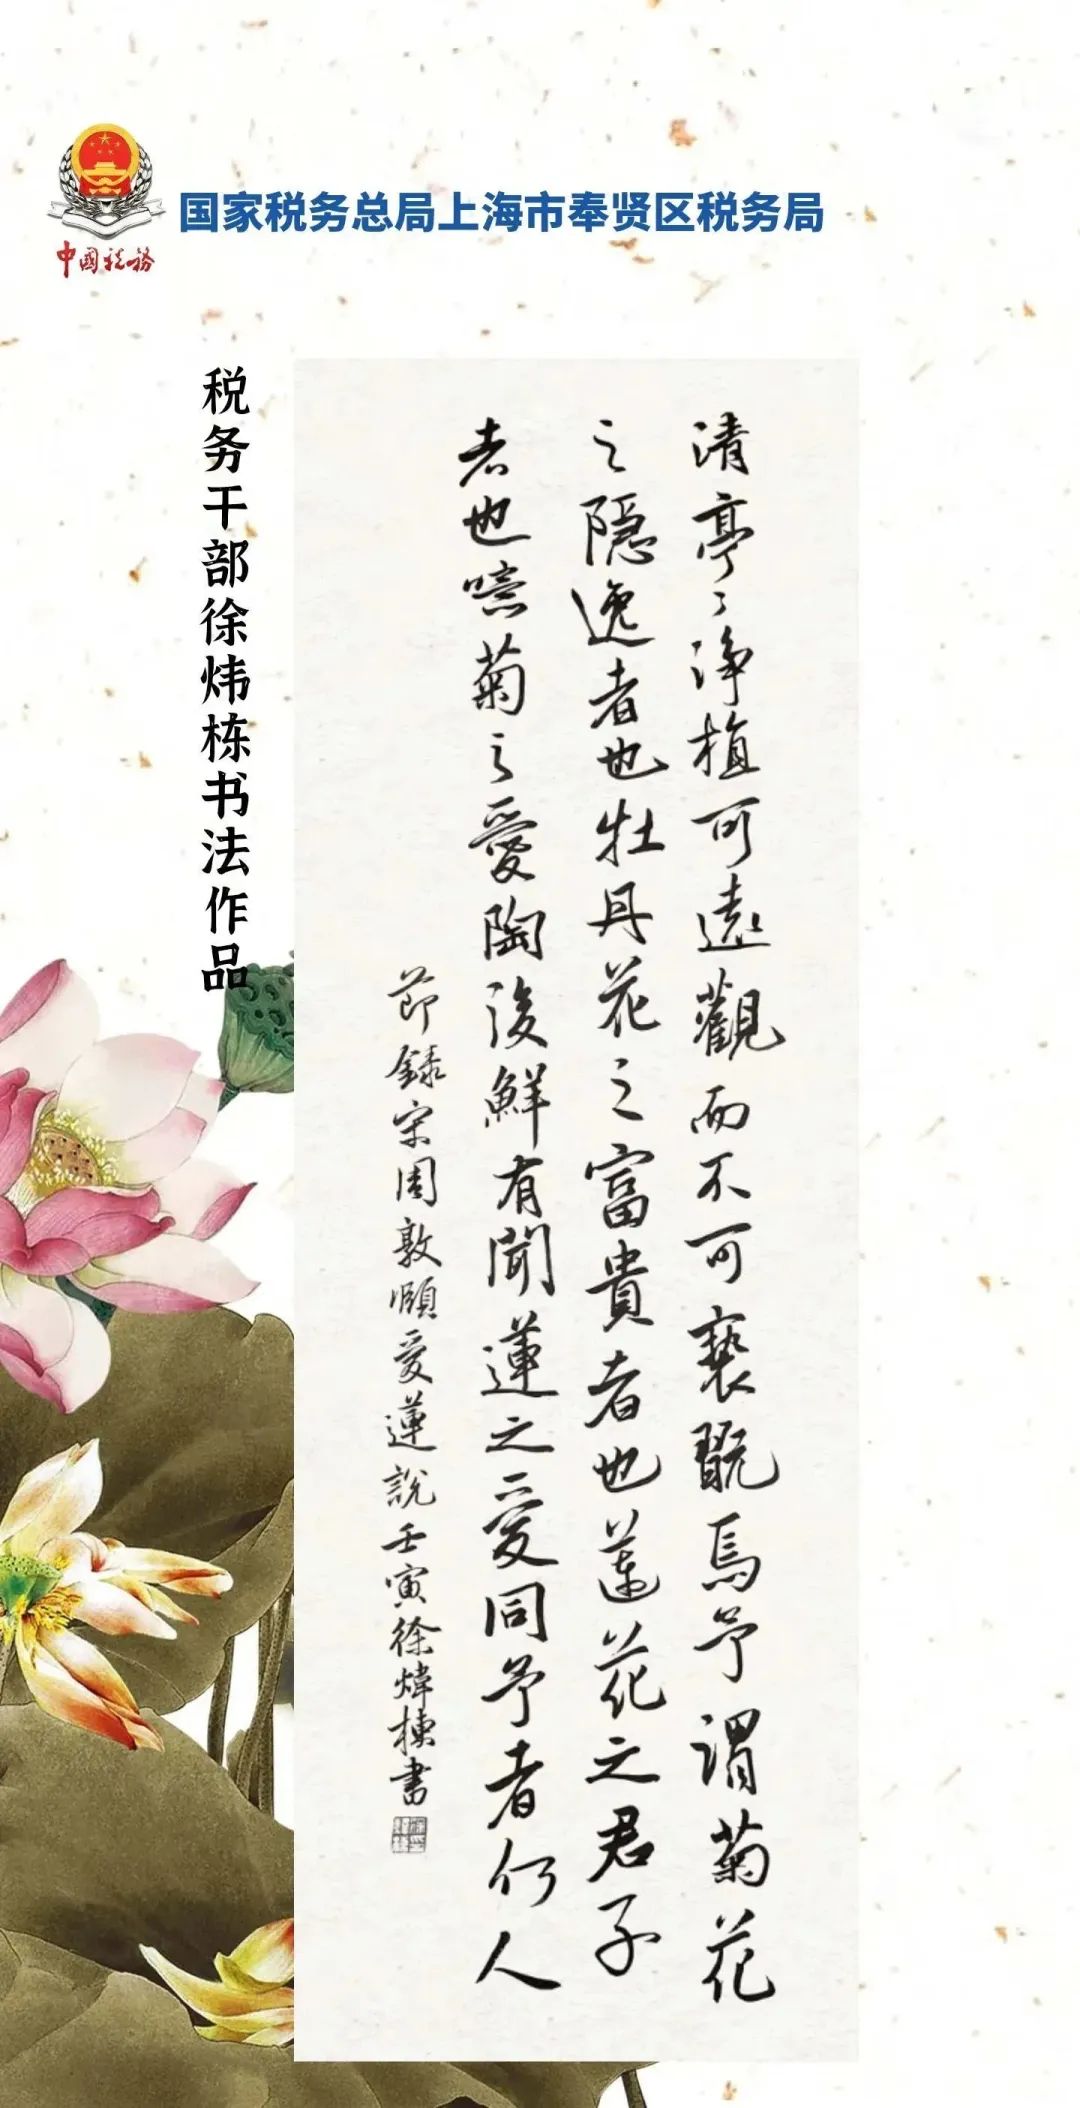 国家税务总局上海市奉贤区税务局
中国税务
税务干部徐炜栋书法作品
清亭〻净植可遠觀而不可褻翫焉予謂菊花
之隱逸者也牡丹花之富貴者也蓮花之君子
者也噫菊之愛陶後鮮有聞蓮之愛同予者何人
節録宋周敦頤愛蓮說壬寅徐煒棟書